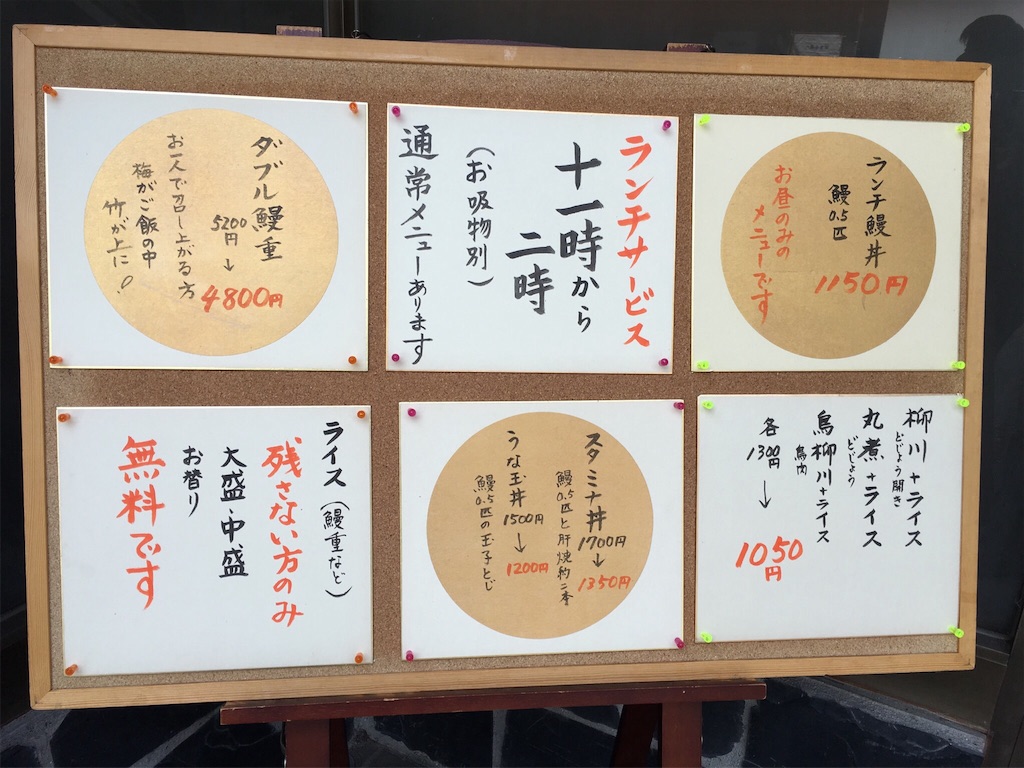 ランチ鰻丼
鰻0.5匹
1150円
お昼のみの
メニューです
ランチサービス
十一時から
二時
(お吸物別)
通常メニューあります
ダブル鰻重
5200円→
4800円
お一人で召し上がる方
梅がご飯の中
竹が上に!
柳川+ライス
どじょう開き
丸煮+ライス
どじょう
鳥柳川+ライス
鳥肉
各1300円→
1050円
スタミナ丼
1700円→
1350円
鰻0.5匹と肝焼約二本
うな玉丼
1500円→
1200円
鰻0.5匹の玉子とじ
ライス(鰻重など)
残さない方のみ
大盛・中盛
お替り
無料です